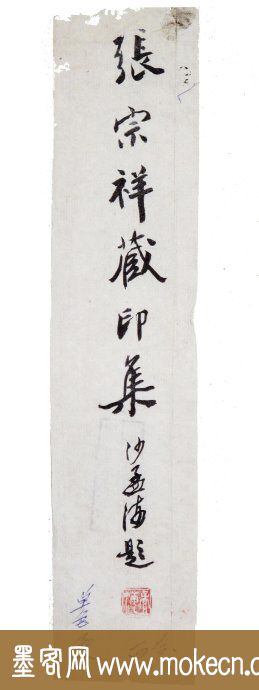 張宗祥藏印集
沙孟海題
墨客网 www.mokecn.com